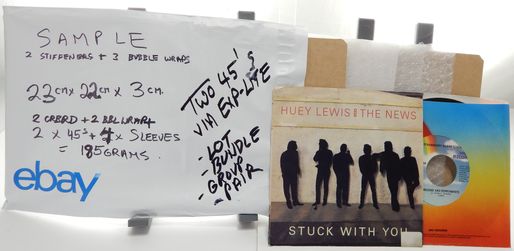 SAMPLE
2 STIFFENERS + 3 BUBBLE WRAPS
23cm x 22cm x 3 cm.
2 CRBRD + 2 BBLWRAP
2 x 45s + 4 x SLEEVES
= 185 GRAMS.
ebay
TWO 45'S
VIA EXP-LITE
- LOT
- BUNDLE
- GROUP
- PAIR
HUEY LEWIS AND THE NEWS
STUCK WITH YOU